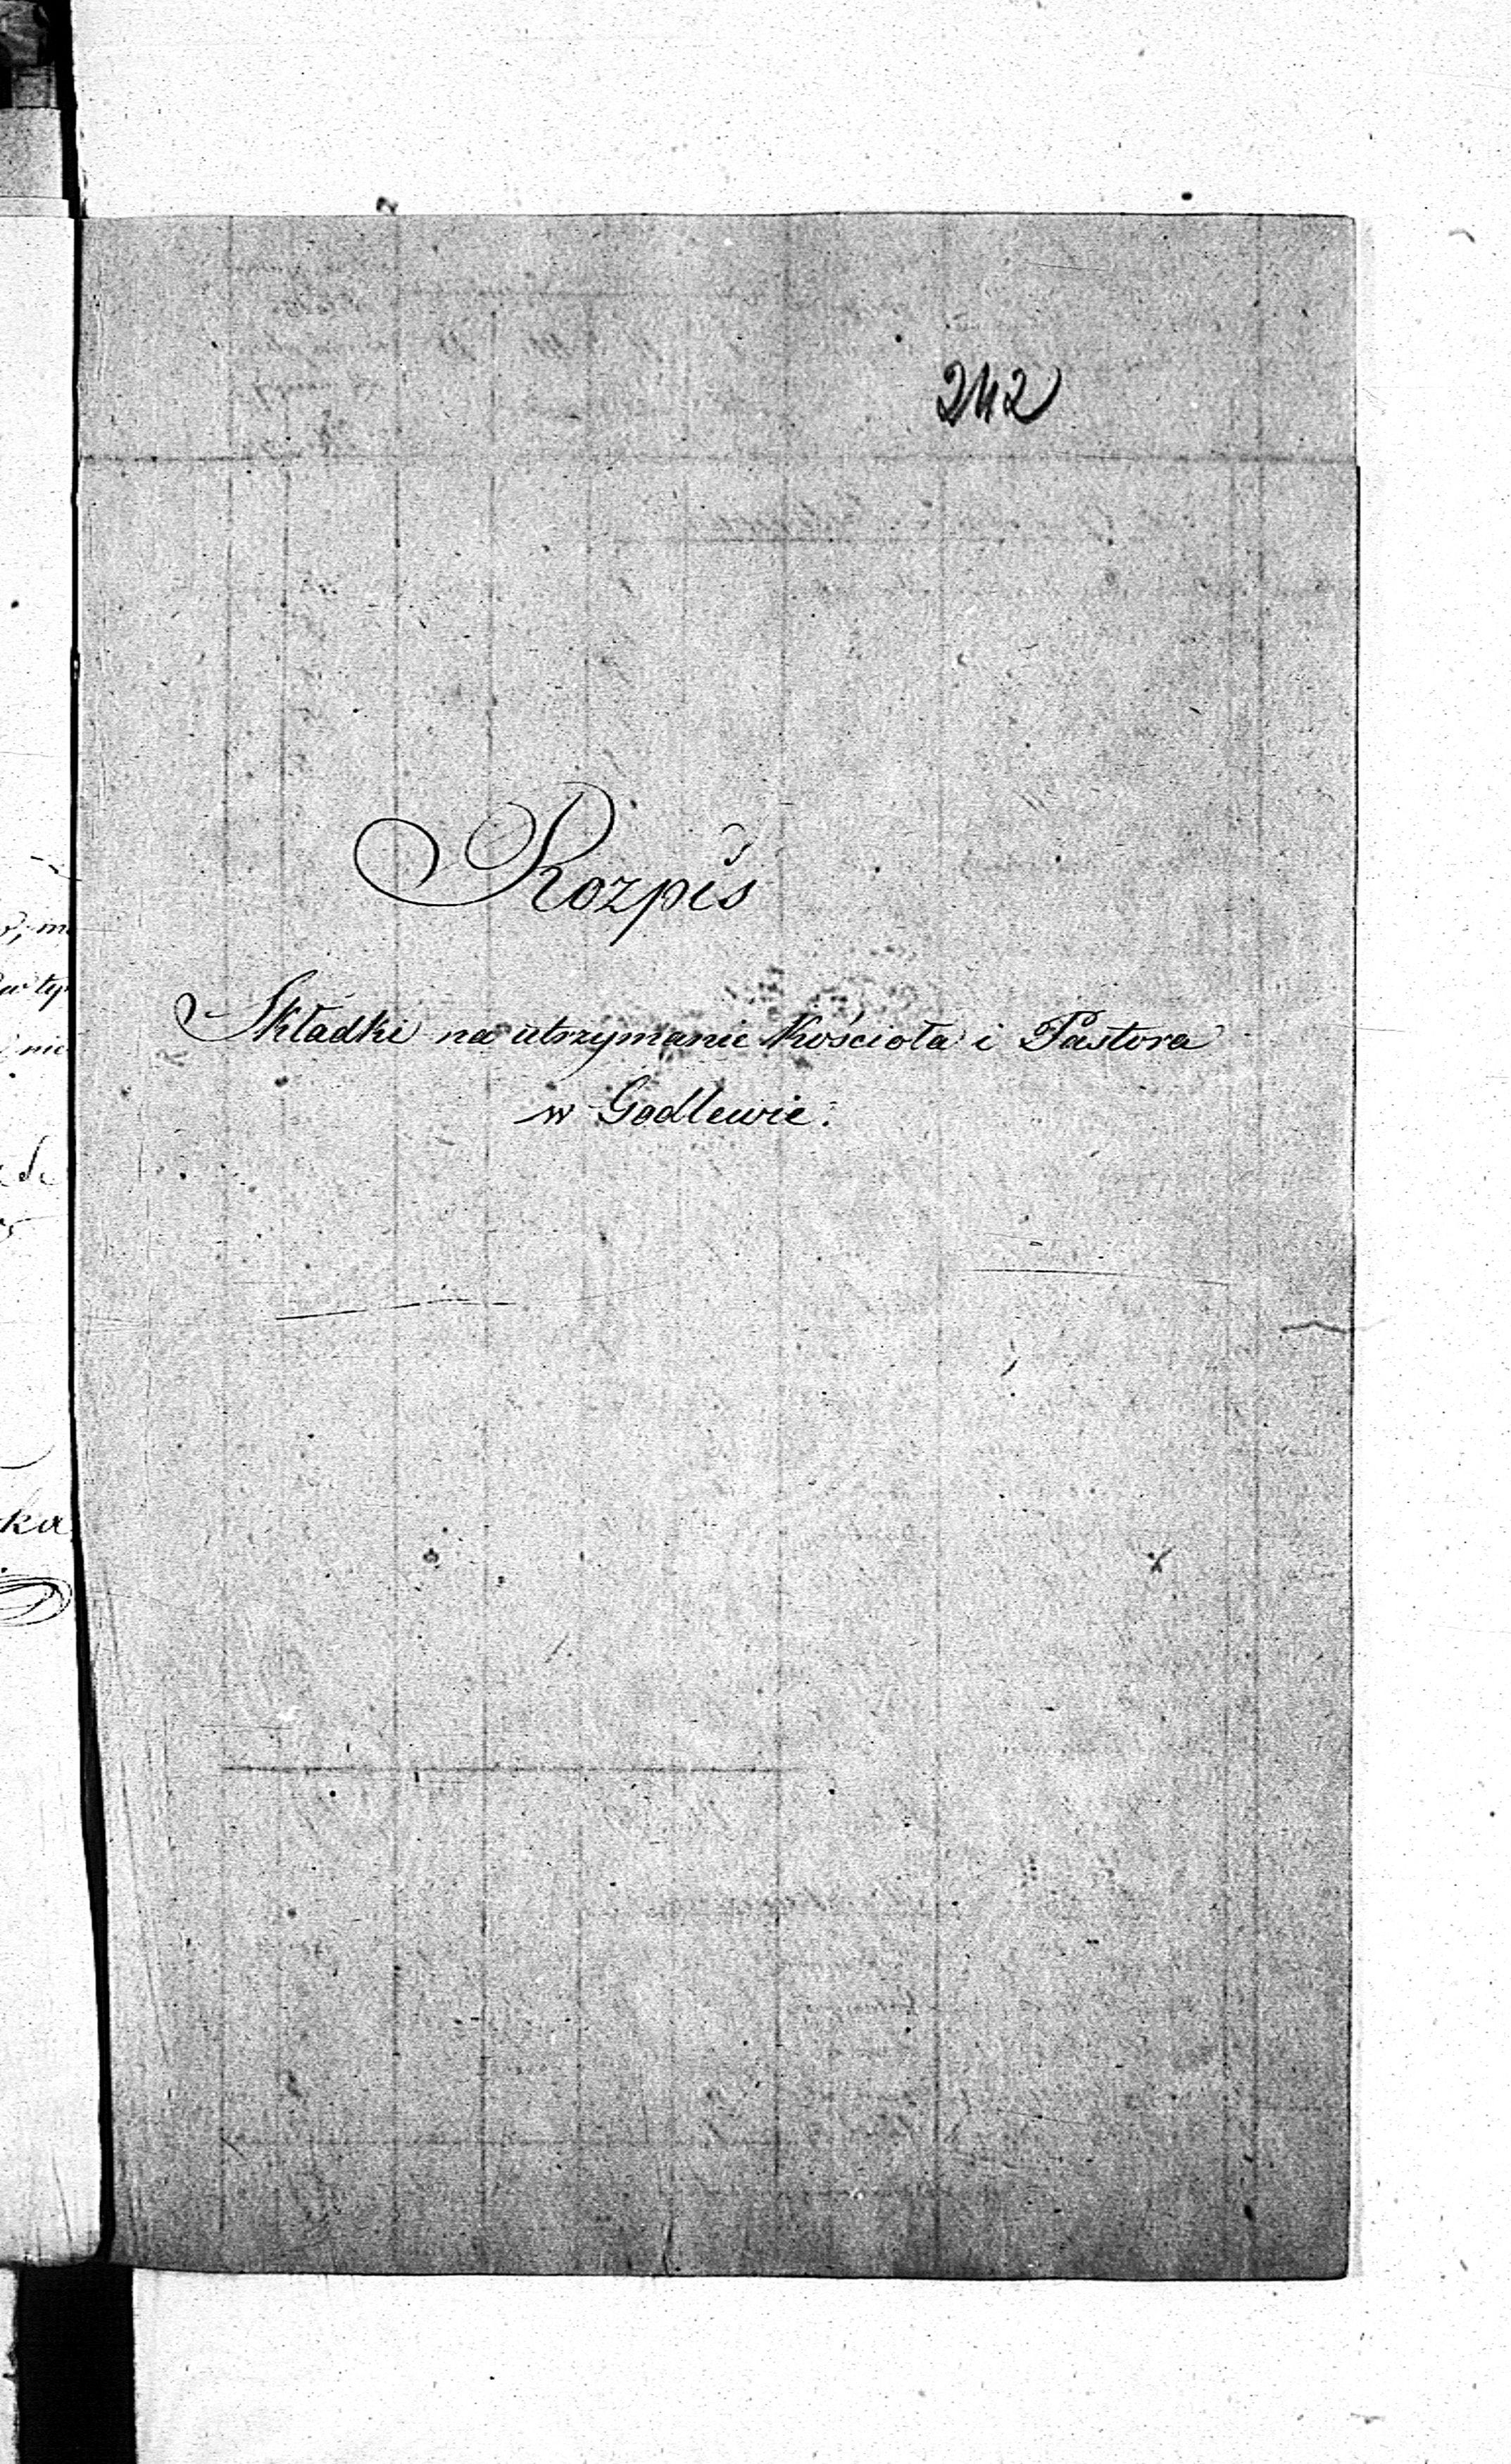 242
Rozpis
Składki na utrzymanie Kościoła i Pastora
w Godlewie.
ka